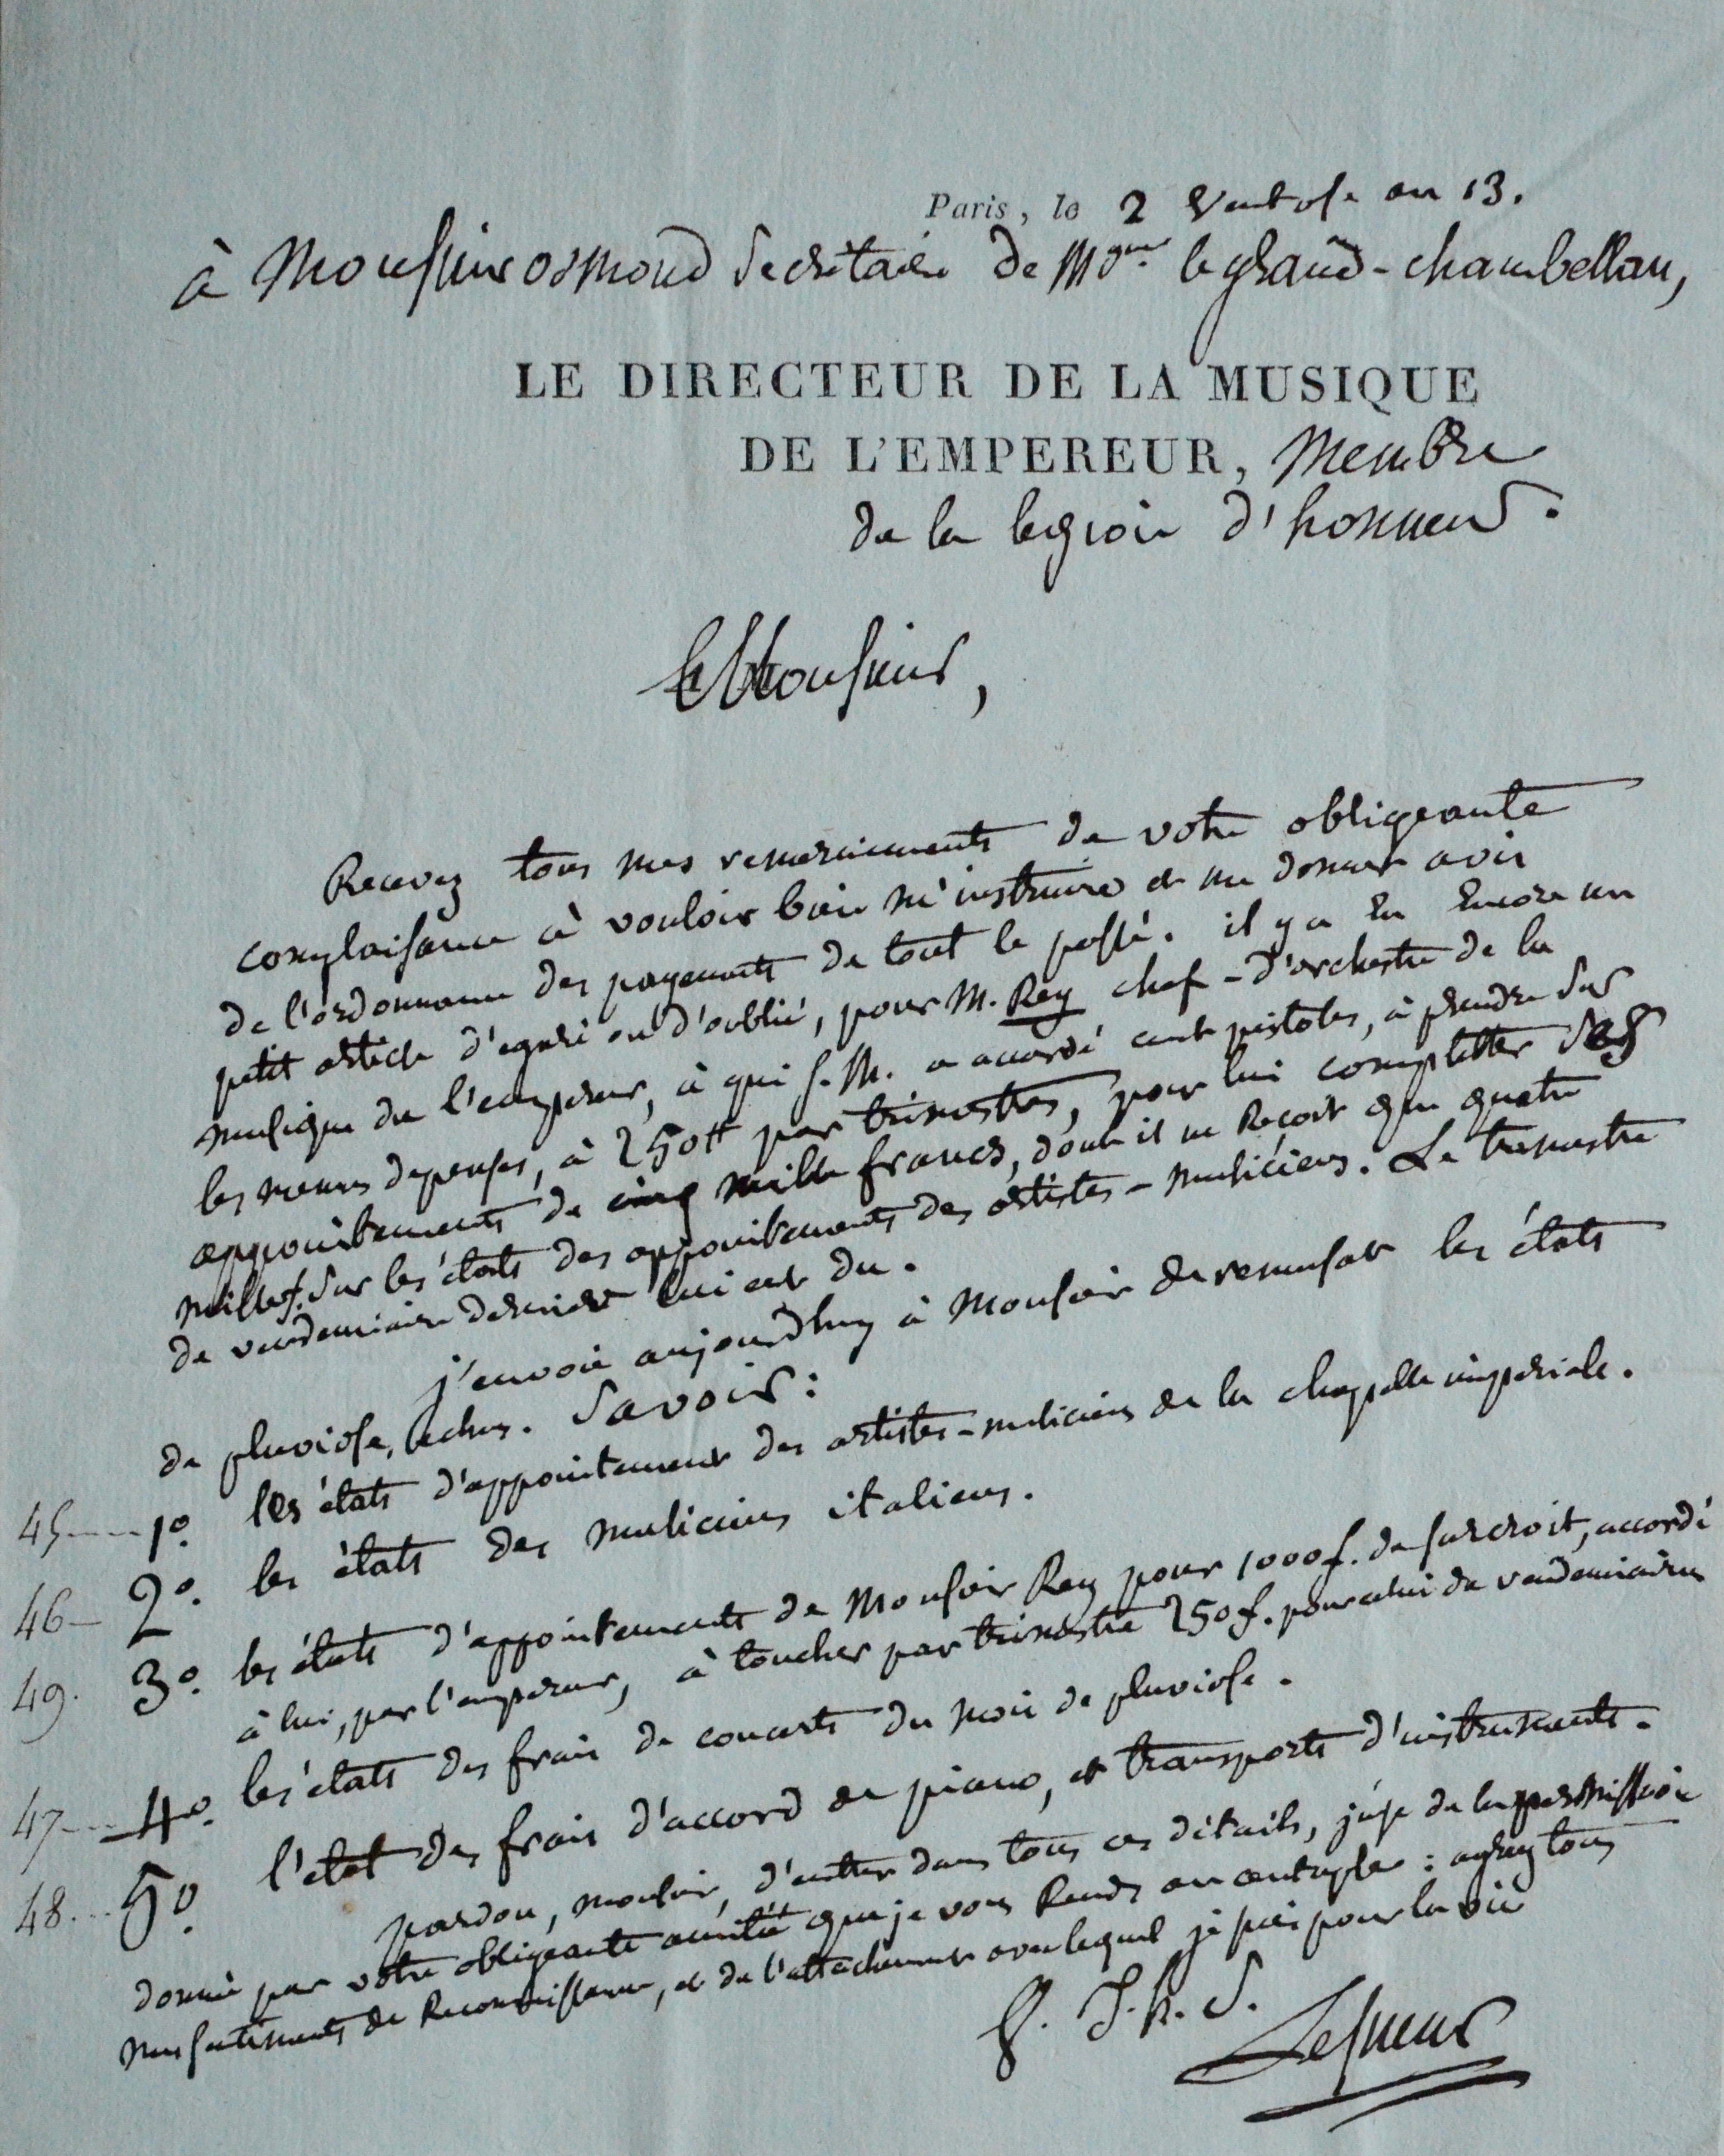 Paris, le 2 Ventose an 13.
à Monsieur osmond Secrétaire de Mgr. le grand-chambellan,
LE DIRECTEUR DE LA MUSIQUE
DE L'EMPEREUR, Membre
de la legion d'honneur.
Monsieur,
Recevez tous mes remerciements de votre obligeante
complaisance à vouloir bien m'instruire et me donner avis
de l'ordonnance des payements de tout le passé. il y a eu encore un
petit article d'egaré ou d'oublié, pour M. Rey chef-d'orchestre de la
musique de l'empereur, à qui S. M. a accordé cent pistoles, à prendre sur
les menus depenses, à 250# par trimestre, pour lui completter ses
appointements de cinq mille francs, dont il ne Recoit que quatre
mille f. sur les états des appointements des artistes-musiciens. Le trimestre
de vendemiaire dernier lui est du.
j'envoie aujourdhuy à Monsieur de remusat les états
de pluviose, échus. Savoir:
45 1º. les états d'appointement des artistes-musiciens de la chapelle imperiale.
46 2º. les états des musiciens italiens.
49. 3º. les états d'appointements de Monsieur Rey pour 1000 f. de surcroit, accordé
à lui, par l'empereur, à toucher par trimestre 250 f. pour celui de vendemiaire
47 4º. les états des frais de concerts du mois de pluviose.
48. 5º. l'état des frais d'accord de piano, et transports d'instruments.
pardon, monsieur, d'entrer dans tous ces détails, j'use de la permission
donnée par votre obligeante amitié que je vous Rends au centuple: agréez tous
mes sentiments de Reconnaissance, et de l'attachement avec lequel je suis pour la vie
V. T. h. S.
Lesueur